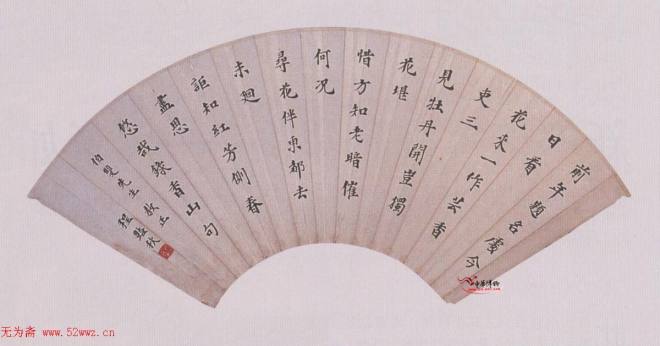 前年題名處今
日看
花來一作芸香
吏三
見牡丹開豈獨
花堪
惜方知老暗催
何況
尋花伴東都去
未廻
詎知紅芳側春
盡思
悠哉錄香山句
伯先生教正
程豔秋
无为斋 www.52wwz.cn